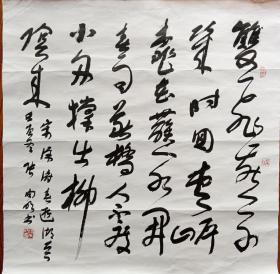 雙飛燕子
幾時回夾岸
桃花蘸水開
春雨斷橋人不度
小舟撐出柳
陰來
宋徐俯春遊湖